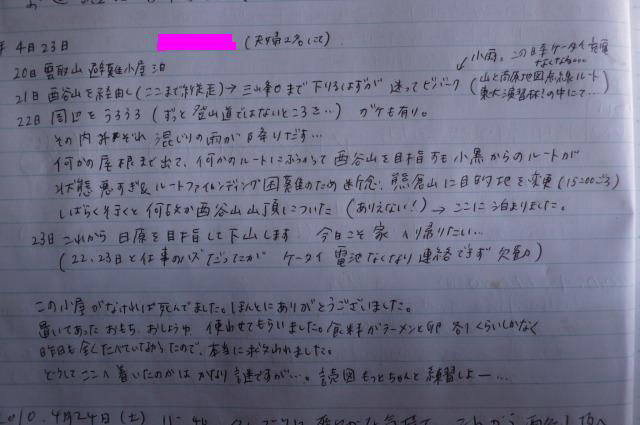 4月23日 (夫婦2名にて)
20日 雲取山 避難小屋 泊
小雨。この日ケータイ充電なくなる...
21日 酉谷山を経由し(ここまで縦走)→三峰口まで下りるはずが 迷ってビバーク (山と高原地図 破線ルート
東大演習林!の中にて...)
22日 周辺をうろうろ (ずっと登山道ではないところを...) ガケも有り。
その内みぞれ混じりの雨が降りだす...
何かの尾根まで出て、何かのルートにぶつかって 酉谷山を目指すも 小黒からのルートが
状態悪すぎ& ルートファインディング困難のため断念、熊倉山に目的地を変更 (15:00ごろ)
しばらく行くと何故か酉谷山山頂についた (ありえない!) → ここに泊まりました。
23日 これから日原を目指して下山します 今日こそ家へ帰りたい...
(22、23日と仕事のハズだったが ケータイ電池なくなり連絡できず 欠勤)
この小屋がなければ死んでました。ほんとにありがとうございました。
置いてあったおもち、おしょうゆ 使わせてもらいました。食料がラーメンと 各1くらいしかなく
昨日も全くたべていなかったので、本当に救われました。
どうしてここへ着いたのかは かなり謎ですが...。読図もっとちゃんと練習しよー...。
2010.4月24日(土)